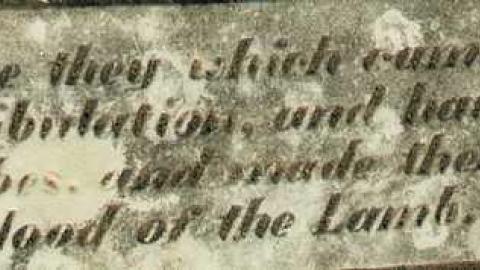 e they which cam
ibulation, and ha
bes, and made the
lood of the Lamb.